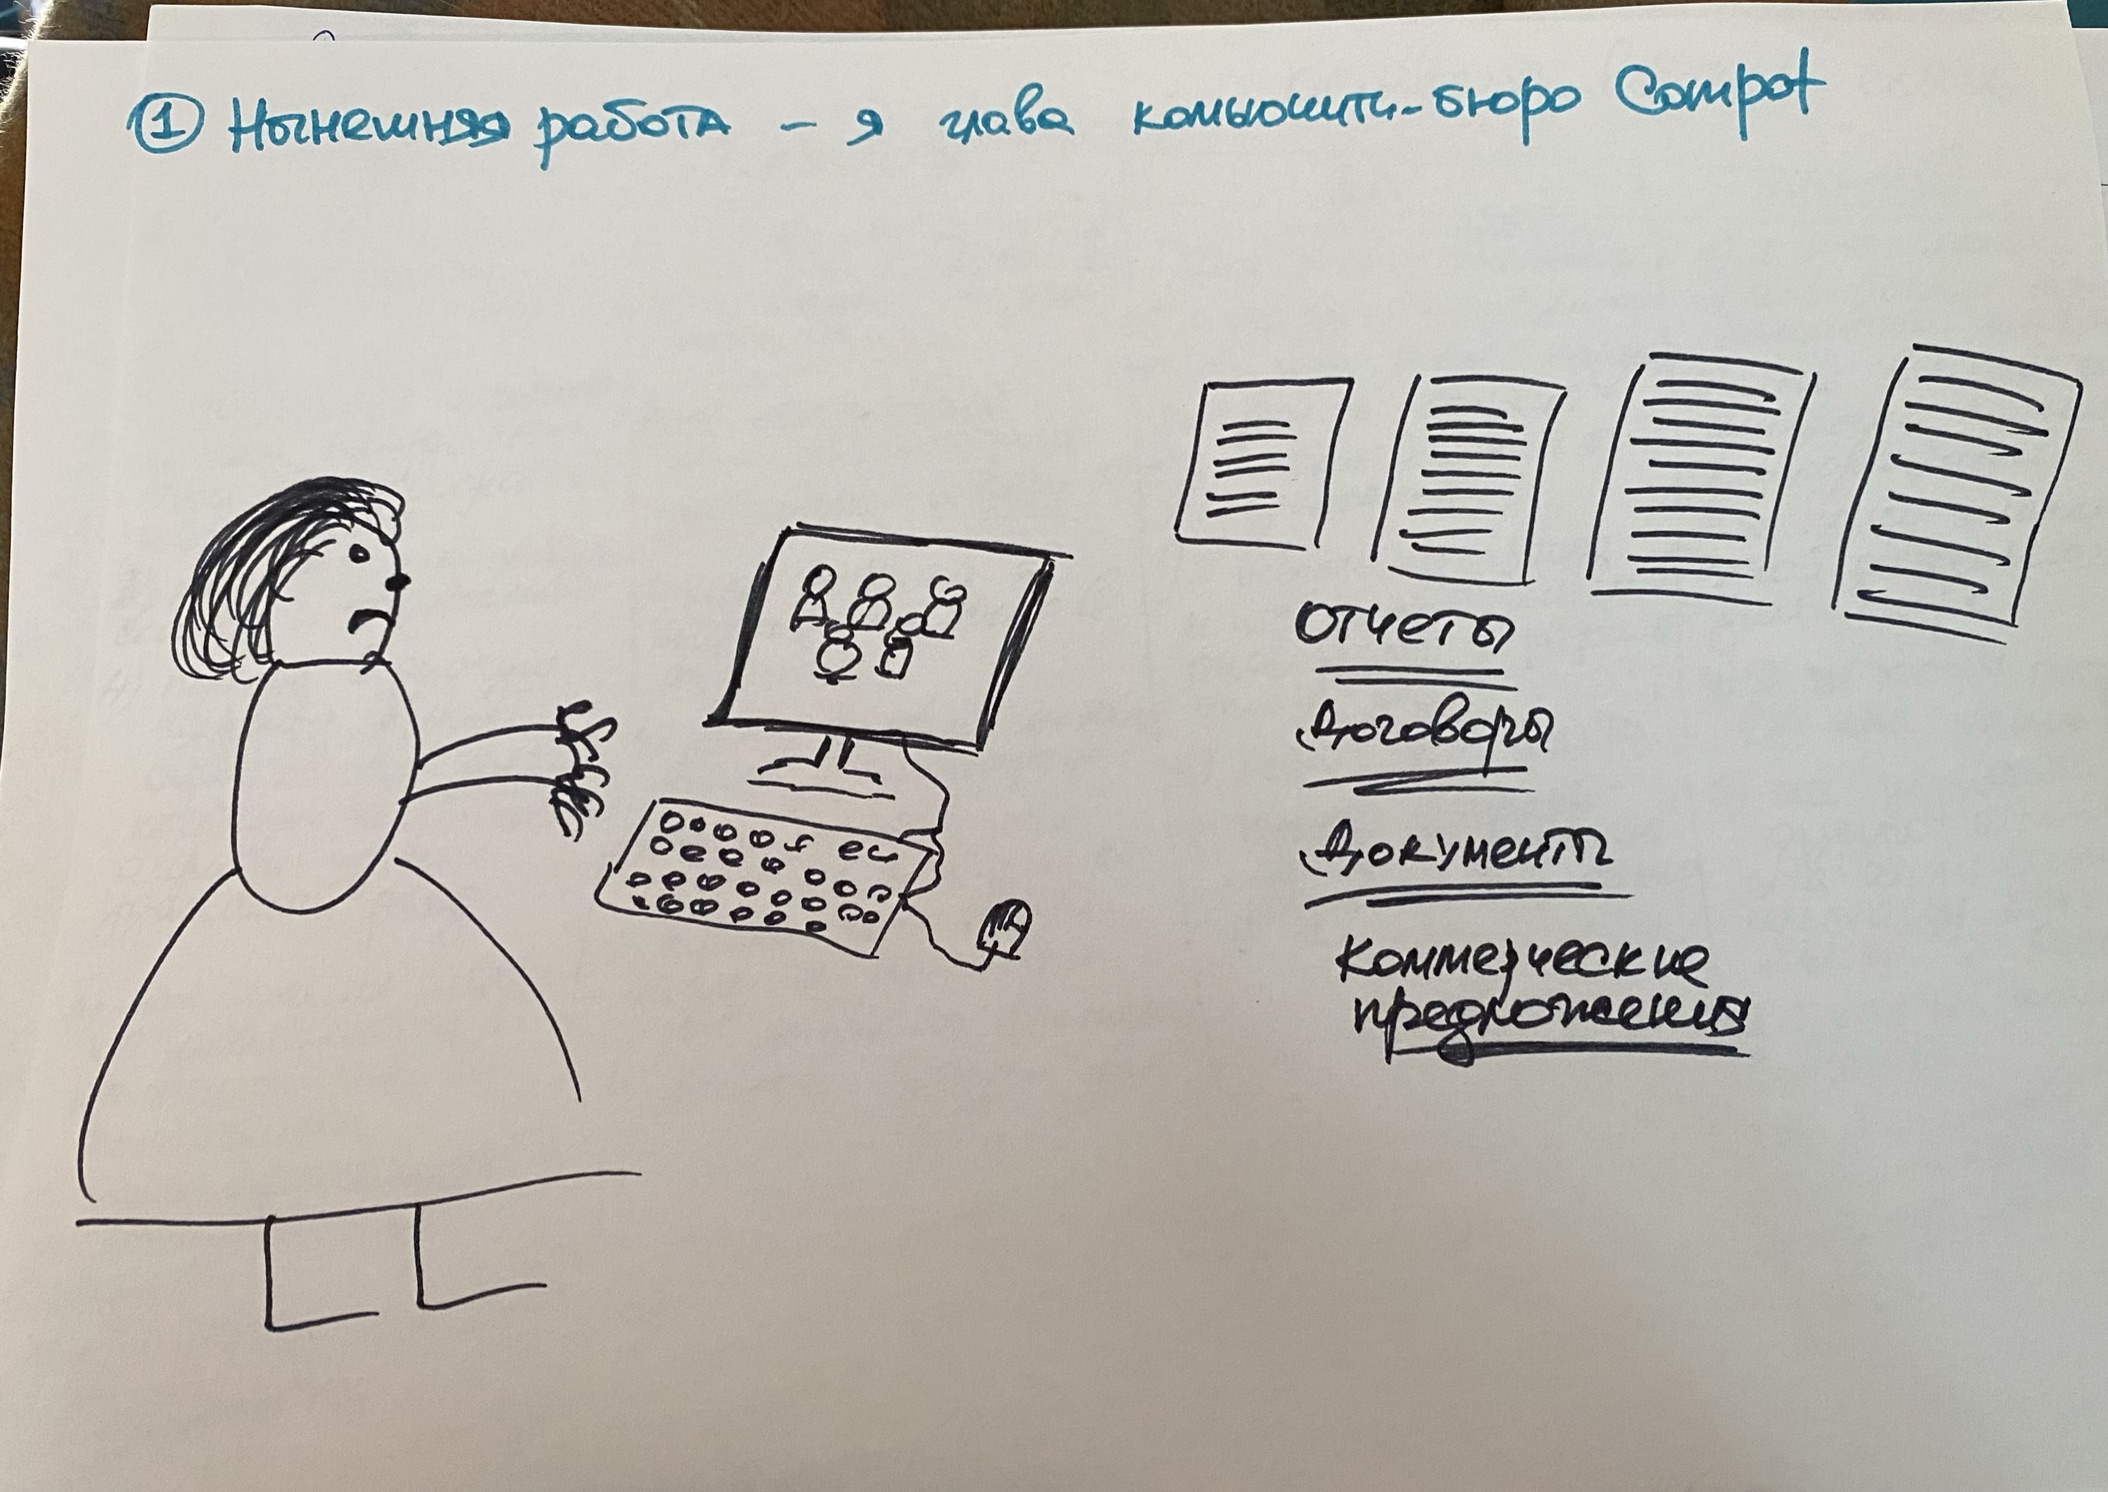 1 Нынешняя работа – я глава комьюнити-бюро Compot
отчеты
Договоры
Документы
Коммерческие
предложения